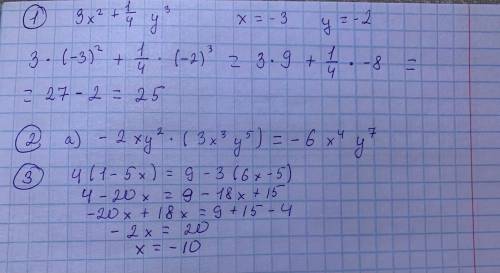 ① 3x² + 1/4 y³ x = -3 y = -2
3 · (-3)² + 1/4 · (-2)³ = 3 · 9 + 1/4 · -8 =
= 27 - 2 = 25
② a) - 2xy² · (3x³y⁵) = -6x⁴y⁷
③ 4(1-5x) = 9 - 3(6x-5)
4 - 20x = 9 - 18x + 15
-20x + 18x = 9 + 15 - 4
- 2x = 20
x = -10